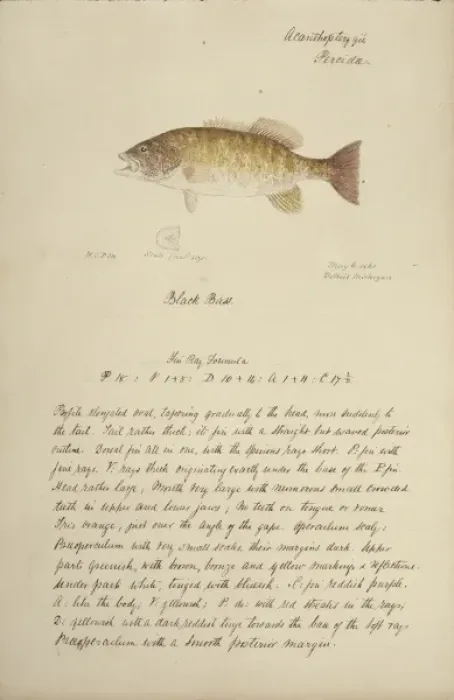 Acanthopterygii
Percidæ
Scale (real size)
Detroit Michigan
Black Bass.
Fin Ray Formula
P 18 : V 1+5 : D 10+14 : A 1+11 : C 17 ½
Profile elongated oval, tapering gradually to the head, more suddenly to
the tail. Tail rather thick: its fin with a straight but waved posterior
outline. Dorsal fin all in one, with the spinous rays short. P. fin with
fine rays. V. rays thick originating exactly under the base of the P. fin.
Head rather large; Mouth very large with numerous small crowded
teeth in upper and lower jaws; No teeth on tongue or vomer
Iris orange, just over the angle of the gape. Operculum scaly:
Preoperculum with very small scales, their margins dark. Upper
parts Greenish, with brown, bronze and yellow markings & reflections.
Under part white, tinged with blueish. C. fin reddish purple.
A: like the body; V. yellowish; P. do: with red streaks in the rays;
D: yellowish with a dark reddish tinge towards the base of the soft rays
Preoperculum with a smooth posterior margin.